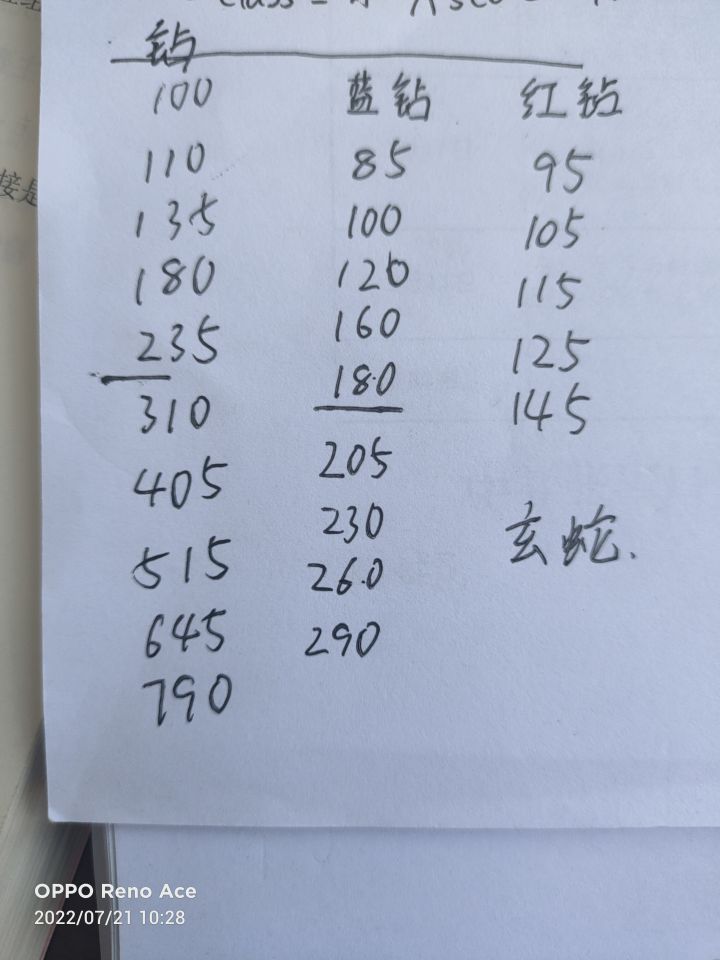 class
钻
100 蓝钻 红钻
110 85 95
135 100 105
180 120 115
235 160 125
310 180 145
405 205
515 230 玄蛇.
645 260
790 290
接是
OPPO Reno Ace
2022/07/21 10:28